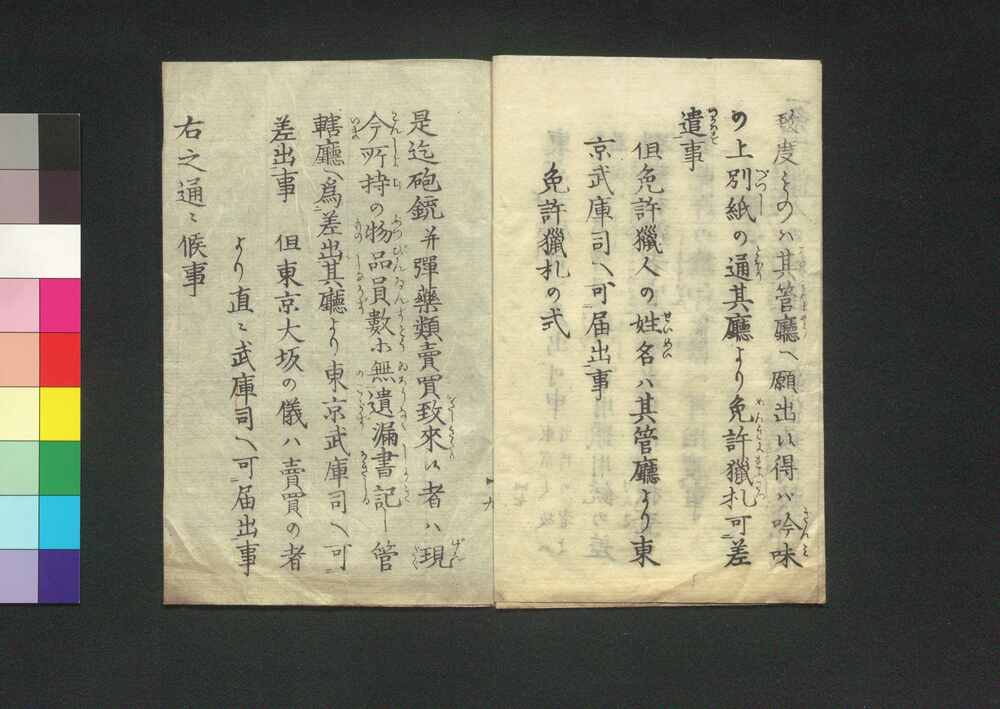 致度ものハ其管廳ヘ願出候得ハ吟味
の上別紙の通其廳より免許獵札可差
遣事
但免許獵人の姓名ハ其管廳より東
京武庫司ヘ可届出事
免許獵札の式
是迄砲銃并彈藥類賣買致來候者ハ現
今所持の物品員數等無遺漏書記し管
轄廳ヘ爲差出其廳より東京武庫司ヘ可
差出事
但東京大坂の儀ハ賣買の者
より直ニ武庫司ヘ可届出事
右之通ニ候事
九